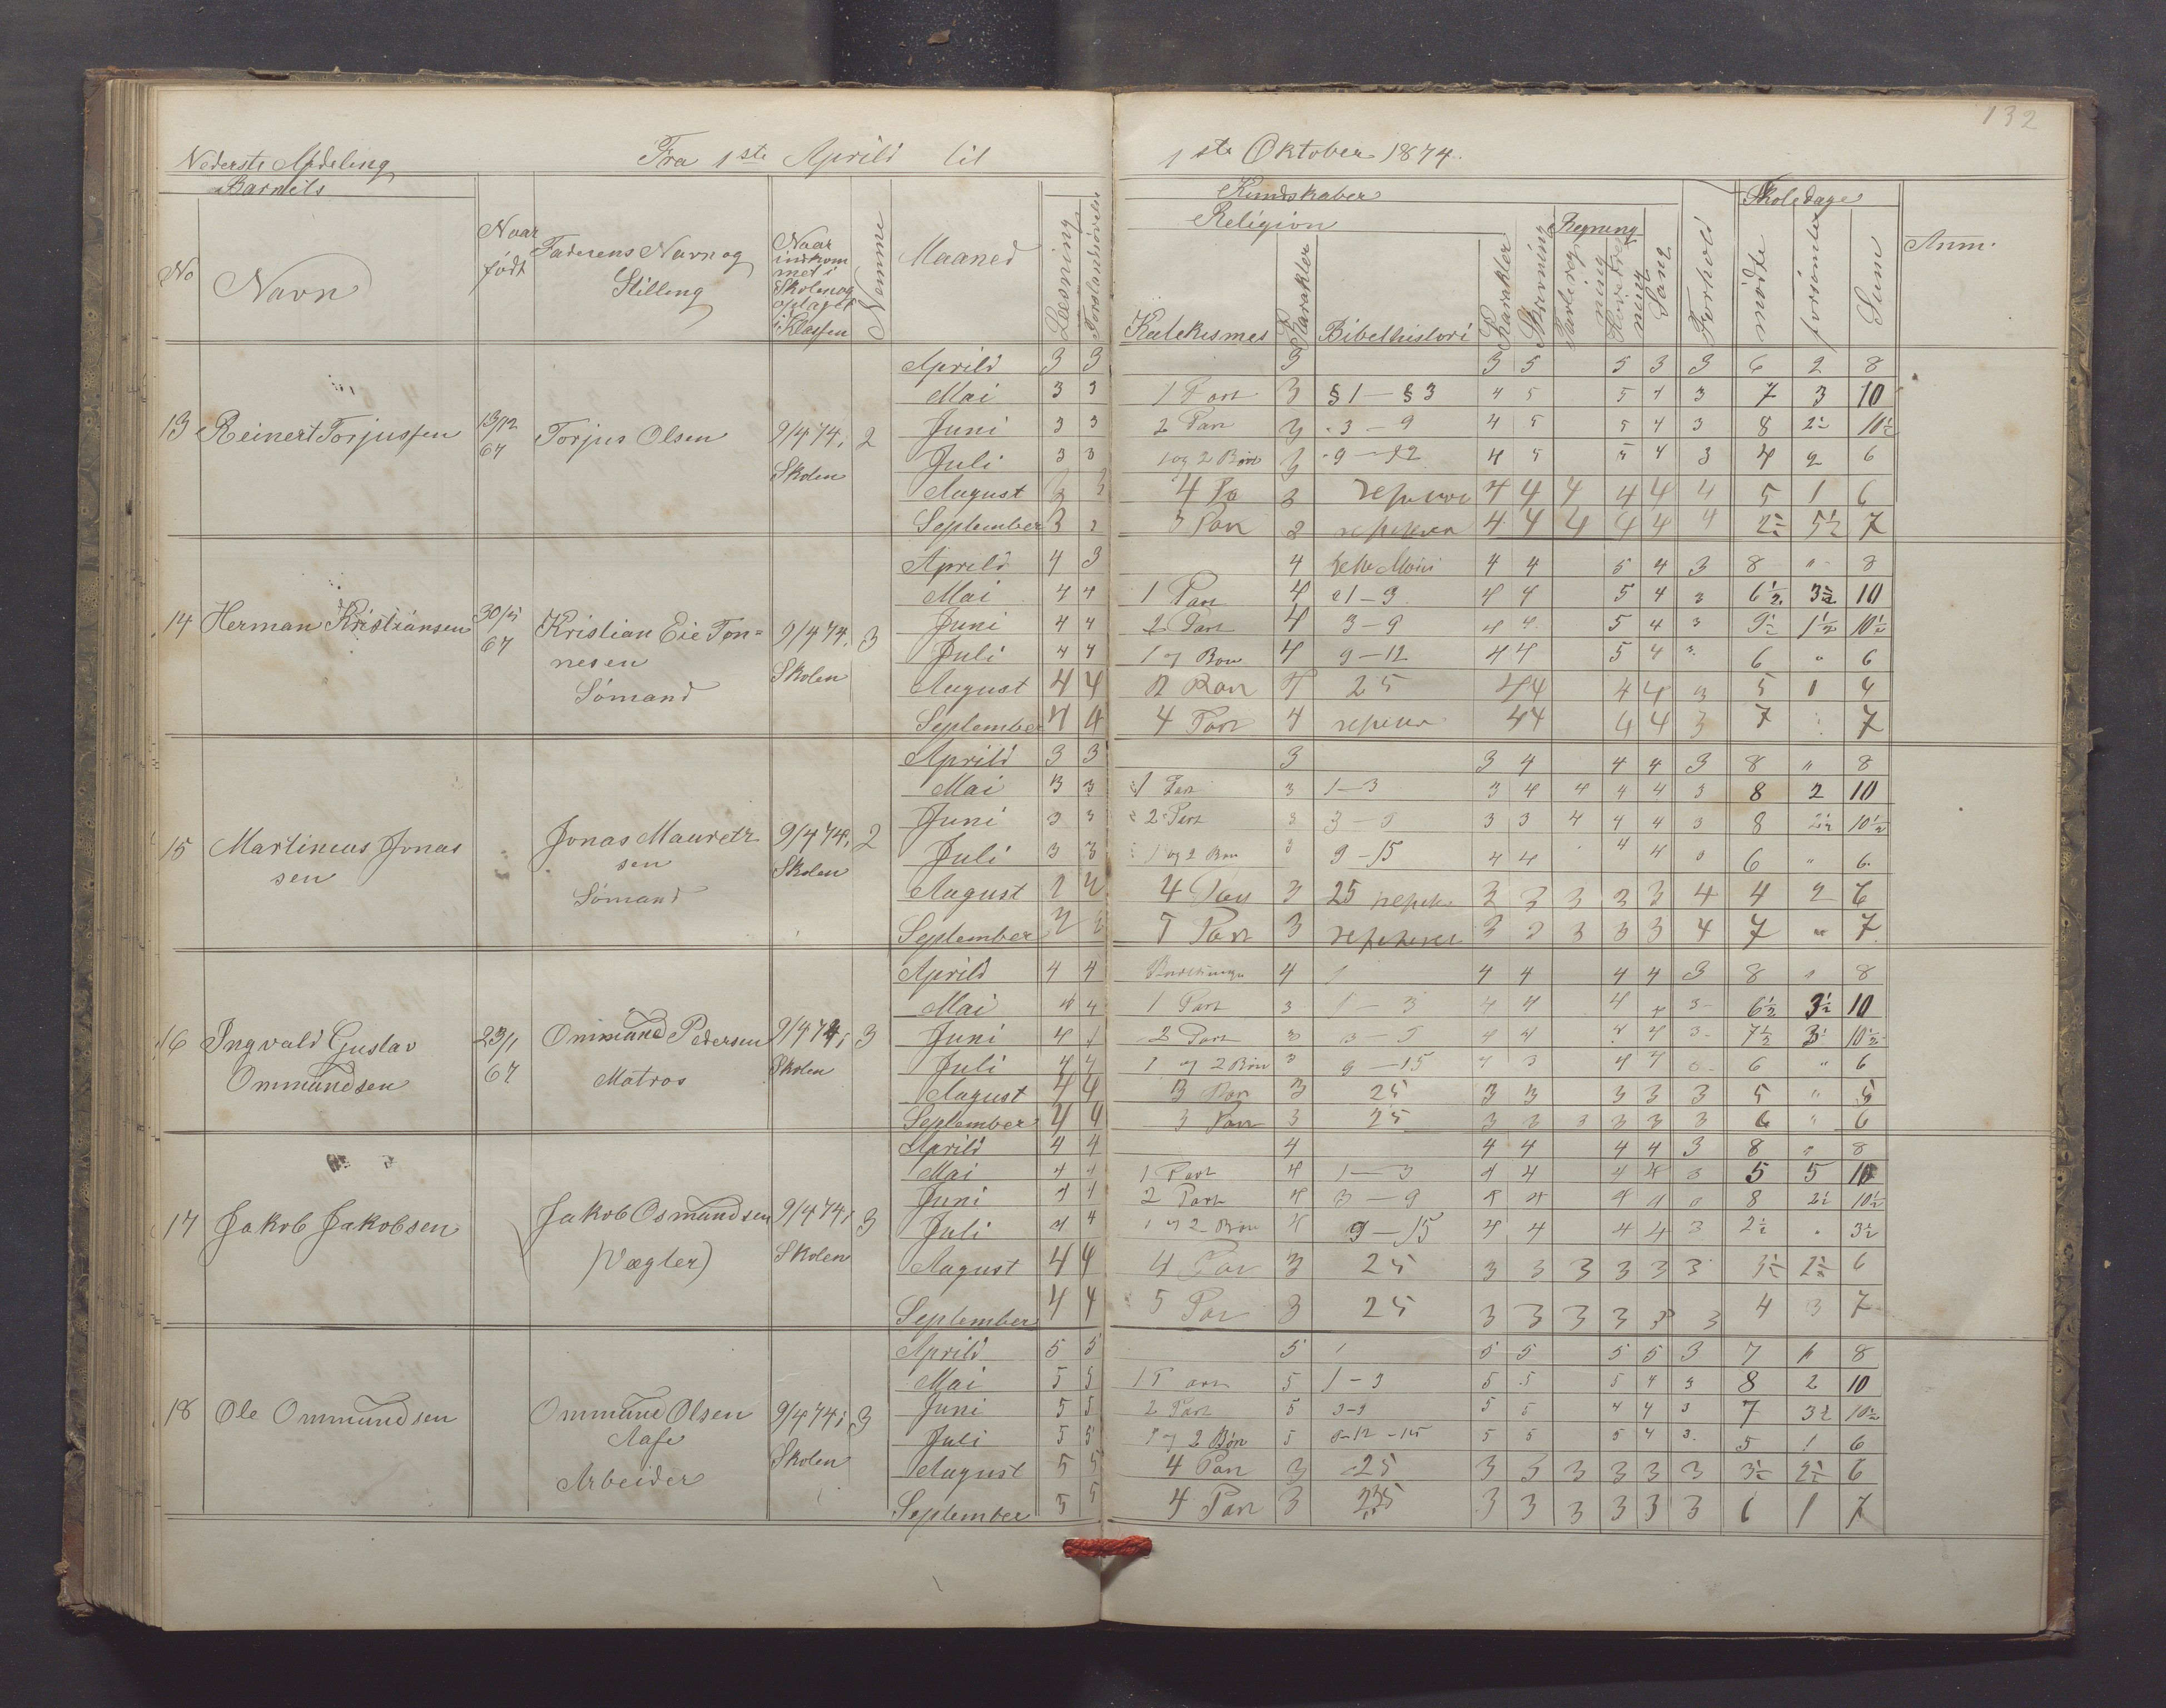 132
Nederste Afdeling Fra 1ste Aprild til 1ste Oktober 1874.
Barnets Kundskaber Skoledage
No Navn Naar født Faderens Navn og Stilling Naar indkommet i Skolen og optaget i Klassen Nemme Maaned Læsning Forstandsøvelse Religion Katekismes Karakter Bibelhistori Karakter Skrivning Regning Tavleregning Hovedregning Sang Forhold mødte forsømte Sum Anm.
Aprild 3 3 3 3 5 5 3 3 6 2 8
Mai 3 3 1 Part 3 § 1 — § 3 4 5 5 4 3 7 3 10
13 Reinert Torjussen 13/12 67 Torjus Olsen 9/4 74, Skolen 2
Juni 3 3 2 Part 3 3 — 9 4 5 5 4 3 8 2½ 10½
Juli 3 3 1 og 2 Bøn 3 9 — 12 4 5 5 4 3 4 2 6
August 3 3 4 Pa 3 4 4 4 4 4 4 5 1 6
September 3 2 3 Par 2 4 4 4 4 4 4 5½ 7
Aprild 4 3 4 4 4 5 4 3 8 " 8
Mai 4 4 1 Part 4 1 — 3 4 4 5 4 3 6½ 3½ 10
14 Herman Kristiansen 30/5 67 Kristian Eie Tønnesen Sømand 9/4 74, Skolen 3
Juni 4 4 2 Part 4 3 — 9 4 4 5 4 3 9½ 1½ 10½
Juli 4 4 1 og Bøn 4 9 — 12 4 4 5 4 3 6 " 6
August 4 4 Par 4 25 4 4 4 4 3 5 1
September 4 4 4 Part 4 4 4 4 4 3 7 7
Aprild 3 3 3 3 4 4 4 3 8 " 8
Mai 3 3 1 Part 3 1 — 3 3 4 4 4 4 3 8 2 10
15 Martineus Jonassen Jonas Mauretzsen Sømand 9/4 74, Skolen 2
Juni 3 3 2 Part 3 3 3 4 4 4 3 8 2½ 10½
Juli 3 3 1 og 2 Bøn 3 9 — 15 4 4 4 4 3 6 " 6
August 4 Par 3 25 3 3 3 3 3 4 4 2 6
September 5 Part 3 3 3 3 3 3 4 7 " 7
Aprild 4 4 4 1 4 4 4 4 3 8 " 8
Mai 4 4 1 Part 3 1 — 3 4 4 4 4 3 6½ 3½ 10
16 Ingvald Gustav Ommundsen 23/1 67 Ommund Pedersen Matros 9/4 74, Skolen 3
Juni 4 4 2 Part 3 4 4 4 4 3 7½ 3 10½
Juli 4 4 1 og 2 Bøn 3 9 — 15 4 3 4 4 6 " 6
August 4 4 3 Par 3 25 3 3 3 3 3 5 " 5
September 4 4 3 Par 3 25 3 3 3 3 3 3 6 " 6
Aprild 4 4 4 4 4 4 4 3 8 " 8
Mai 4 4 1 Part 4 1 — 3 4 4 4 4 3 5 5 10
Juni 4 4 2 Part 4 3 — 9 4 4 4 4 8 2½ 10½
17 Jakob Jakobsen Jakob Osmundsen (Vægter) 9/4 74, Skolen 3
Juli 4 4 1 og 2 Bøn 4 9 — 15 4 4 4 4 3 2½ " 3½
August 4 4 4 Par 3 25 3 3 3 3 3 3 3½ 2½ 6
September 4 4 5 Par 3 25 3 3 3 3 3 3 4 3 7
Aprild 5 5 5 1 5 5 5 5 3 7 1 8
Mai 5 5 1 Part 5 1 — 3 5 5 5 4 3 8 2 10
18 Ole Ommundsen Ommund Olsen Aase Arbeider 9/4 74, Skolen 3
Juni 5 5 2 Part 5 3-9 5 5 4 4 3 7 3½ 10½
Juli 5 5 1 og 2 Bøn 5 5 5 5 4 3 5 1 6
August 5 5 4 Par 3 25 3 3 3 3 3 3 3½ 2½ 6
September 5 5 4 Par 3 3 3 3 3 3 3 6 1 7